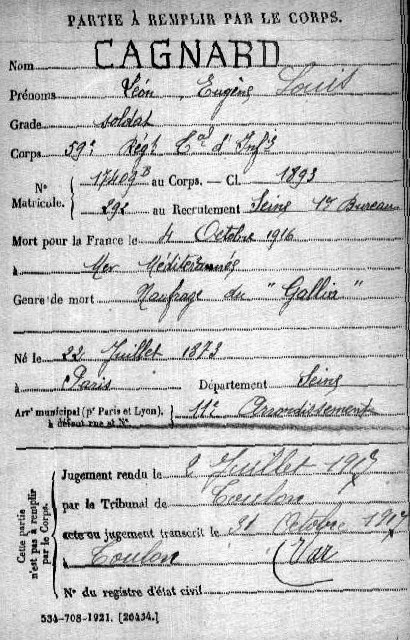 PARTIE À REMPLIR PAR LE CORPS.
Nom CAGNARD
Prénoms Léon Eugène Louis
Grade soldat
Corps 59e Régt Cal d'Infie
N° Matricule. { 17409B au Corps. — Cl. 1893
292 au Recrutement Seine 1er Bureau
Mort pour la France le 4 Octobre 1916
à Mer Méditerannée
Genre de mort Naufrage du "Gallia"
Né le 22 Juillet 1873
à Paris Département Seine
Arrt municipal (pr Paris et Lyon), à défaut rue et N°. { 11e Arrondissement
Cette partie n'est pas à remplir par le Corps.
Jugement rendu le 2 Juillet 1917
par le Tribunal de Toulon
acte ou jugement transcrit le 31 Octobre 1917
à Toulon (Var
N° du registre d'état civil
534-708-1921. [26434.]